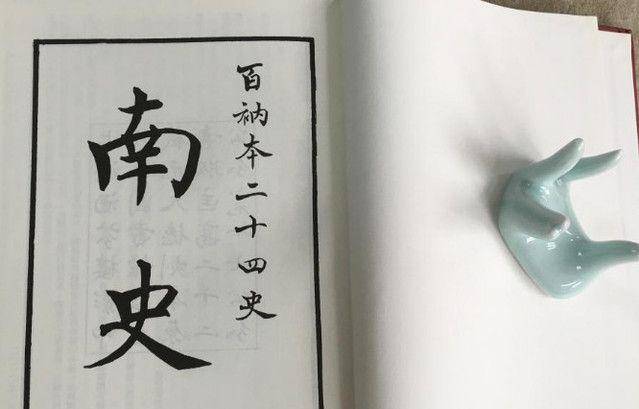 百衲本二十四史
南史